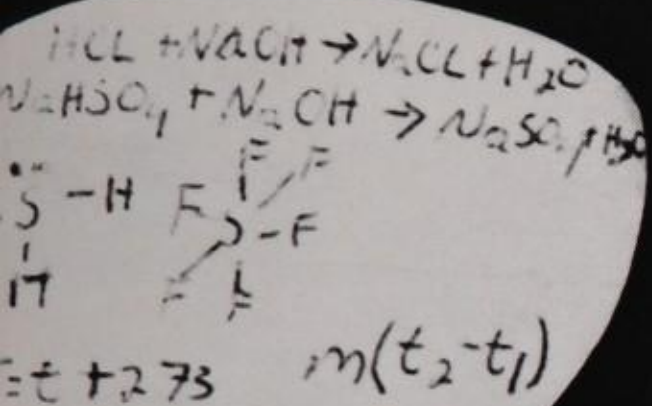 HCL + NaOH → NaCL + H₂O
NaHSO₄ + NaOH → NaSO₄ + H₂O
S - H F F F
S - F
H F F
= t + 273 m(t₂ - t₁)